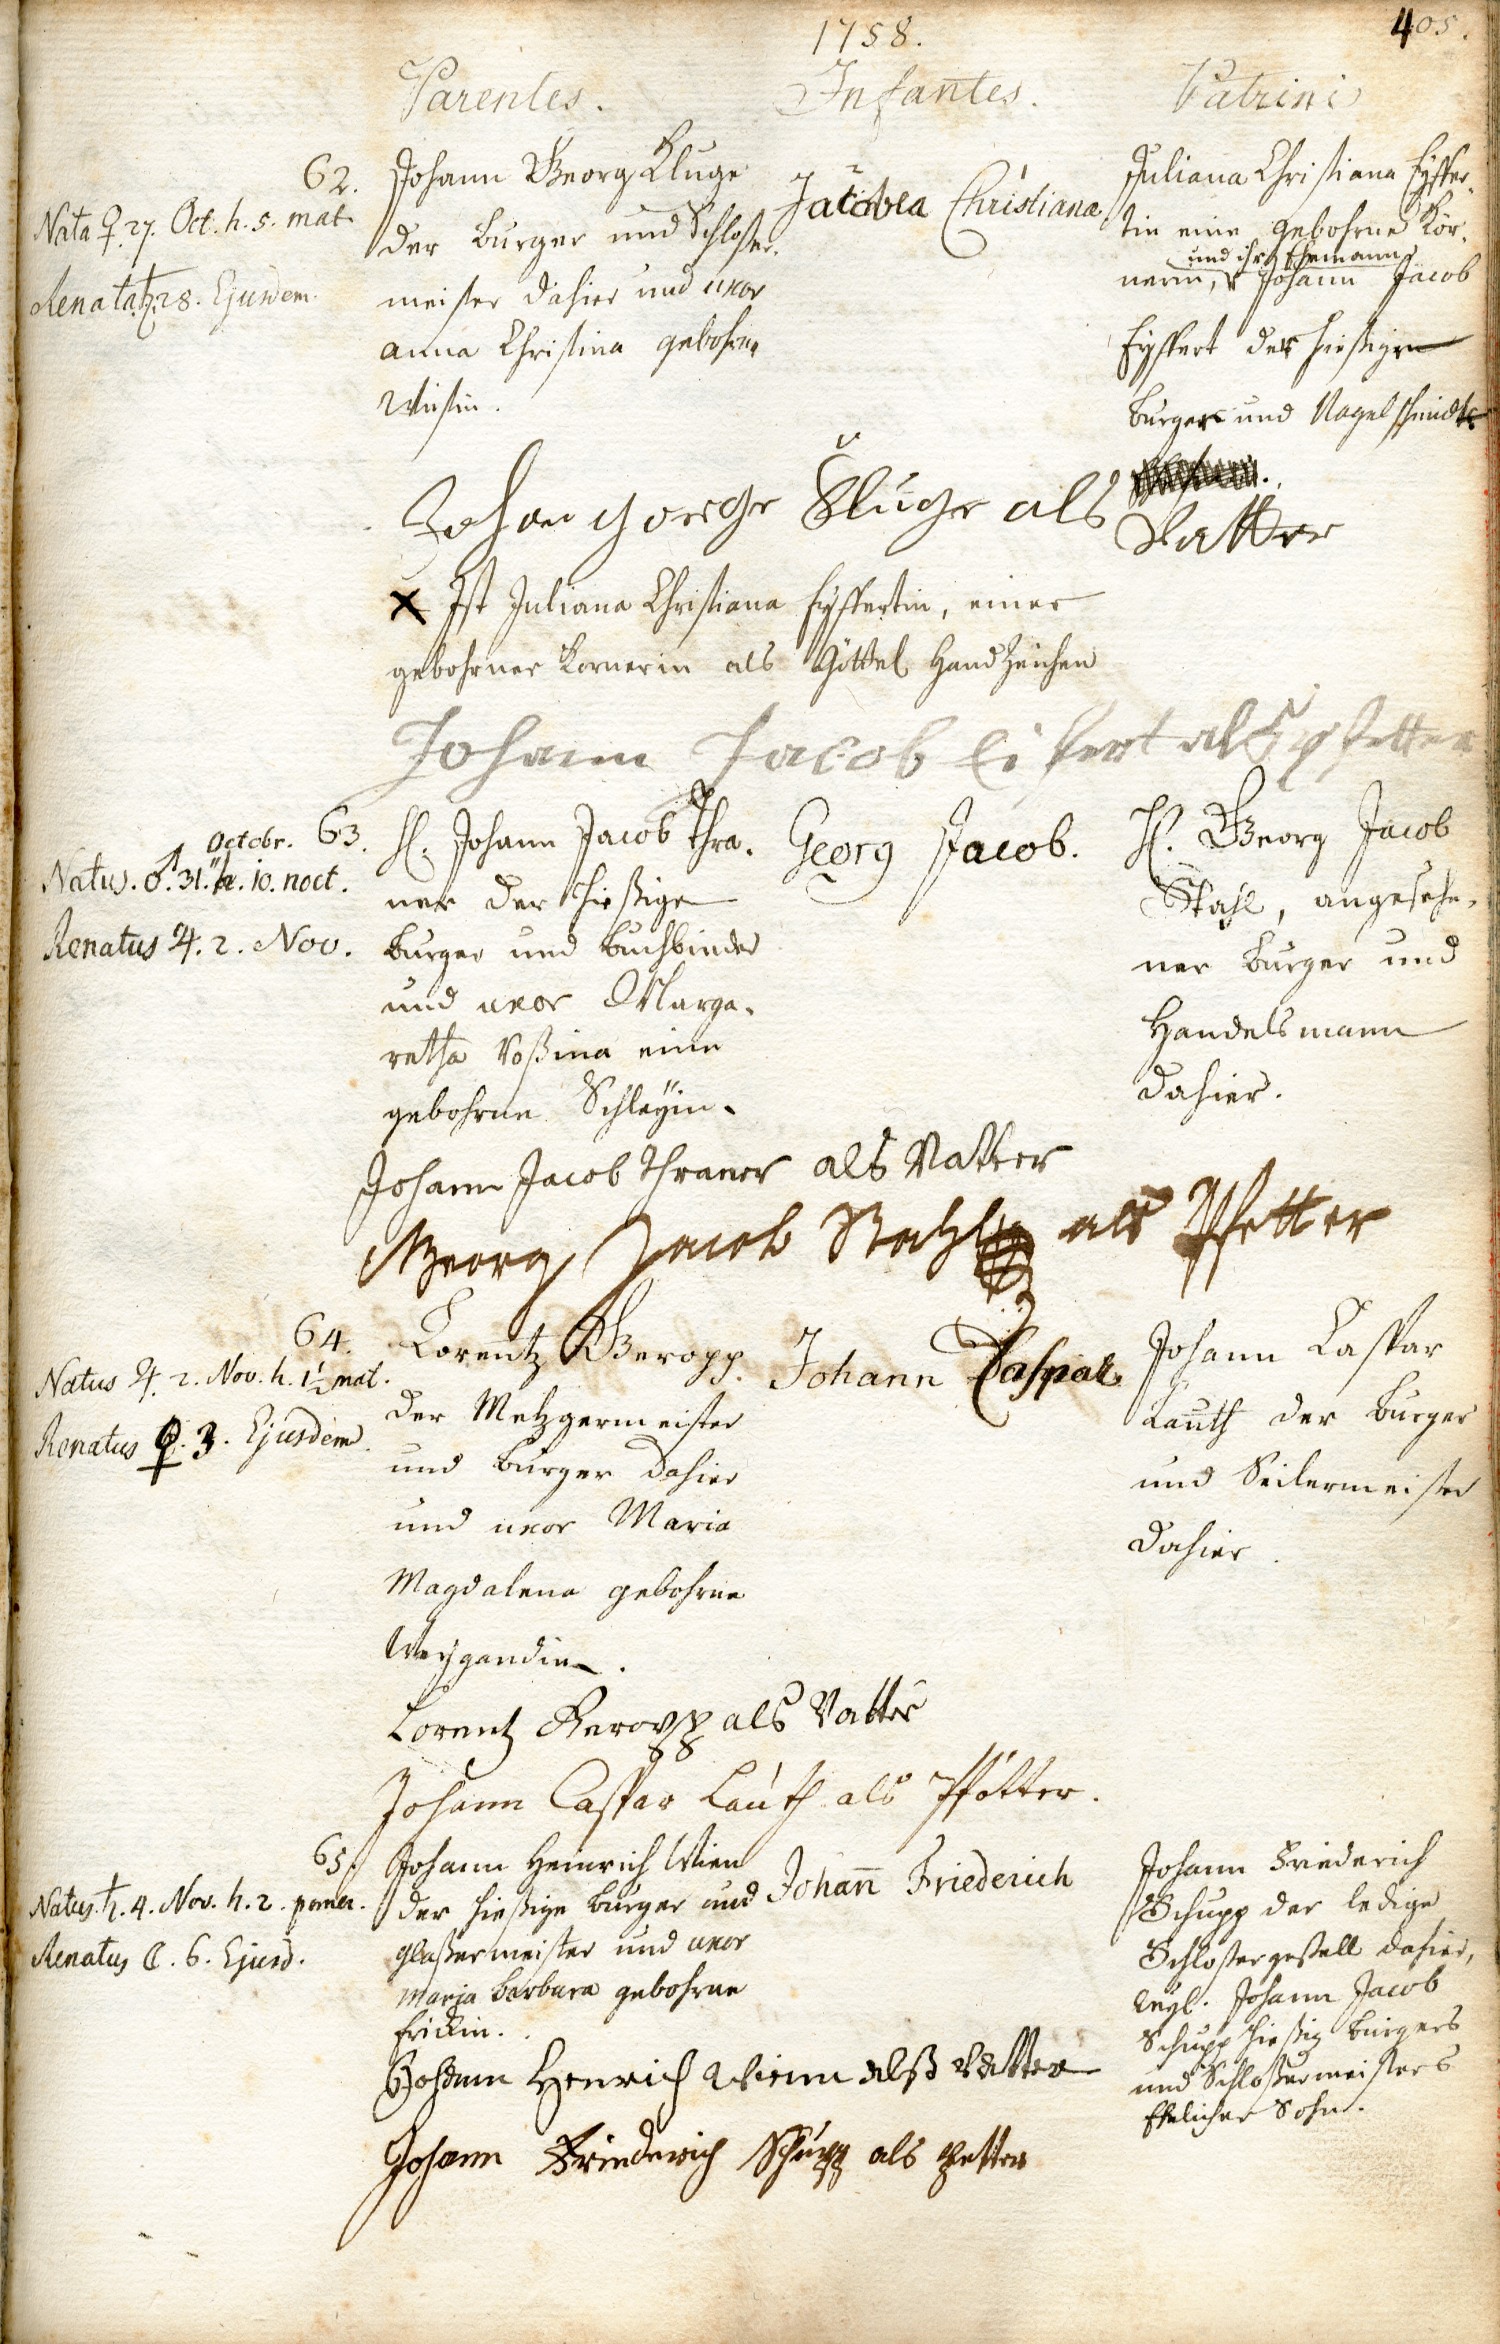 1758.
405.
Parentes.
Infantes.
Patrini
62.
Nata ♀. 27. Oct. h. 5. mat.
Renata ♄. 28. Ejusdem.
Johann Georg Kluge
der burger und Schloßer-
meister dahier und uxor
anna Christina gebohrne
Jacobea Christiana
2
1
Juliana Christiana Eyffer-
tin eine gebohrne Kor-
und ihr Ehemann
nerin, Johann Jacob
Eyffert der hießigen
burger und Nagelschmidt
Johan gorge Kluge als
Vatter
X Ist Juliana Christiana Eyffertin, einer
gebohrner Kornerin als Göttel handzeichen
Johann Jacob Eifert als pfetter
63.
Octobr.
Natus. ♂. 31. h. 10. noct.
Renatus ♃. 2. Nov.
H. Johann Jacob Thra-
ner der hießige
burger und buchbinder
und uxor Marga-
retha Roßina eine
gebohrne Schleÿin.
Georg Jacob.
H. Georg Jacob
Stahl, angesehe-
ner burger und
Handelsmann
dahier.
Johann Jacob Thraner als Vatter
Georg Jacob Stahl als Pfetter
64.
Natus ♃. 2. Nov. h. 1½ mat.
Renatus ♀. 3. Ejusdem.
Lorentz Geropp.
der Metzgermeister
und burger dahier
und uxor Maria
Magdalena gebohrne
Weygandin.
Johann Caspar
Johann Caspar
Lauth der burger
und Seilermeister
dahier.
Lorentz Geropp als Vatter
Johann Caspar Lauth als Pfötter.
65.
Natus ♄. 4. Nov. h. 2. pomer.
Renatus ☾. 6. Ejusd.
Johann Heinrich Wien
der hießige burger und
glaßermeister und uxor
maria barbara gebohrne
frickin.
Johann Friederich
Johann Friederich
Schupp der ledige
Schloßergesell dahier,
Johann Jacob
Schupp hießig burgers
und Schloßermeisters
Ehelicher Sohn.
Johann Henrich Wienn alß Vatter
Johann Friederich Schupp als petter